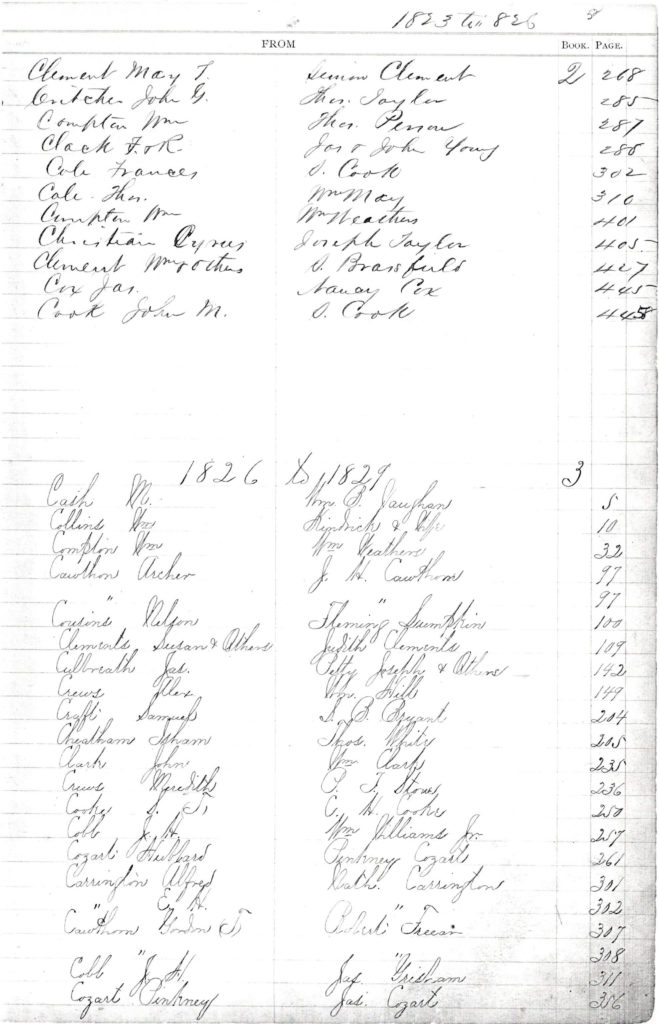 1823 to 1826
FROM BOOK. PAGE.
Clement May T. Simon Clement 2 268
Critcher John G. Thos. Taylor 285
Compton Wm Thos. Person 287
Clack F. & R. Jas & John Young 288
Cole Frances D. Cook 302
Cale Thos. Wm May 310
Compton Wm Wm Weathers 401
Christian Cyrus Joseph Taylor 405
Clement Wm & others D. Brassfield 427
Cox Jas. Nancy Cox 445
Cook John M. D. Cook 448
1826 to 1829 3
Cash M. Wm B. Vaughan 5
Collins Wm Kindrick & Wife 10
Compton Wm Wm Weathers 32
Cawthon Archer J. H. Cawthorn 97
" " 97
Cousins Nelson Fleming Lumpkin 100
Clements Susan & Others Judith Clements 109
Culbreath Jas. Petty Joseph & Others 142
Crews Alex Wm. Hill 149
Craft Samuel S. B. Bryant 204
Cheatham Isham Thos. White 205
Clark John Wm Clark 235
Crews Meredith P. T. Stone 236
Cooke S. T. C. H. Cooke 250
Cobb J. H. Wm Williams Jr. 257
Cozart Hubbard Pinkney Cozart 261
Carrington Alfred Nath. Carrington 301
" E. H. " 302
Cawthorn Gordon T. Robert Freear 307
" " 308
Cobb J. H. Jas. Grisham 311
Cozart Pinkney Jas. Cozart 356